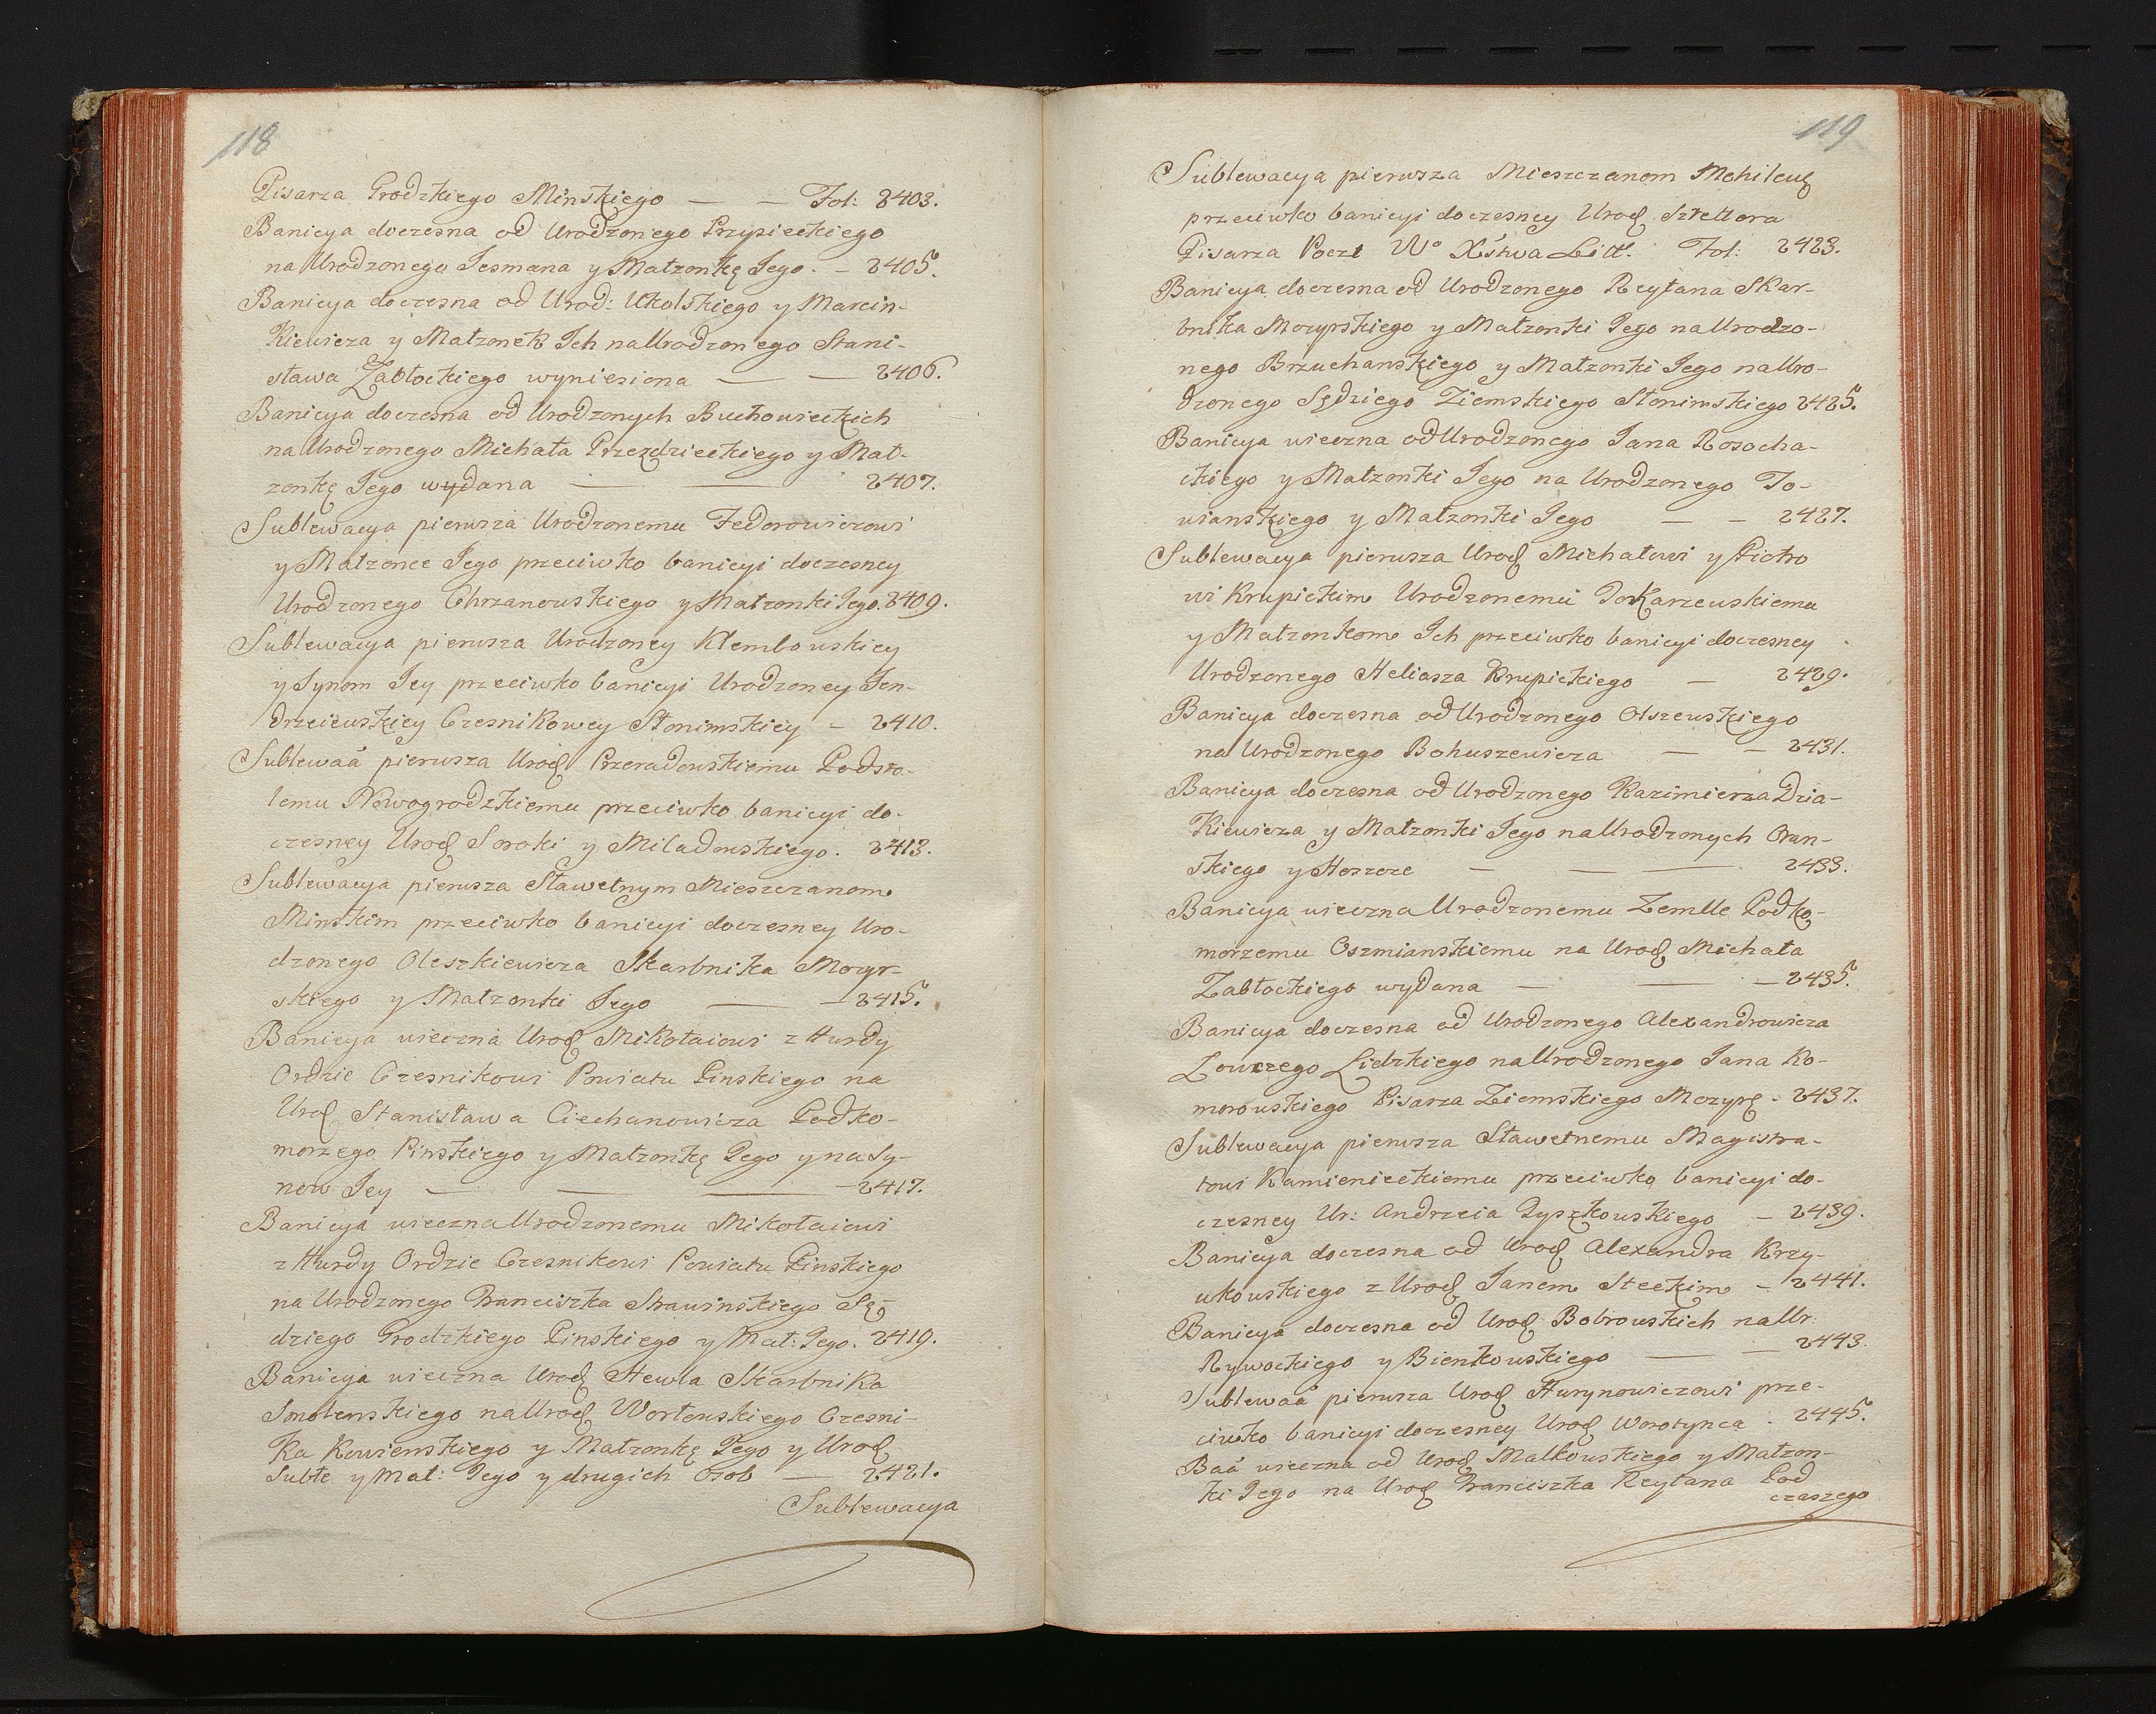 118
Pisarza Grodzkiego Minskiego — — Fol: 2403.
Banicya doczesna od Urodzonego Przysieckiego
na Urodzonego Jesmana y Małzonkę Jego. — 2405.
Banicya doczesna od Urod: Ukolskiego y Marcin-
Kiewicza y Małzonek Ich na Urodzonego Stani-
sława Zabłockiego wyniesiona — — 2406.
Banicya doczesna od Urodzonych Buchowieckich
na Urodzonego Michała Przezdzieckiego y Mał-
zonkę Jego wydana — — 2407.
Sublewacya pierwsza Urodzonemu Fedorowiczowi
y Małzonce Jego przeciwko banicyi doczesney
Urodzonego Chrzanowskiego y Małzonki Jego. 2409.
Sublewacya pierwsza Urodzoney Klembowskiey
y Synom Jey przeciwko banicyi Urodzoney Jen-
drzeiewskiey Czesnikowey Słonimskiey — 2410.
Sublewaã pierwsza Urod Przeradowskiemu Podsto-
lemu Nowogrodzkiemu przeciwko banicyi do-
czesney Urod Soroki y Miladowskiego. 2413.
Sublewacya pierwsza Sławetnym Mieszczanom
Minskim przeciwko banicyi doczesney Uro-
dzonego Oleszkiewicza Skarbnika Mozyr-
skiego y Małzonki Jego — — 2415.
Banicya wieczna Urod Mikołaiowi z Hurdy
Ordzie Czesnikowi Powiatu Pinskiego na
Urod Stanisława Ciechanowicza Podko-
morzego Pinskiego y Małzonkę Jego y na Sy-
now Jey — — — 2417.
Banicya wieczna Urodzonemu Mikołaiowi
z Hurdy Ordzie Czesnikowi Powiatu Pinskiego
na Urodzonego Franciszka Strawinskiego Sę-
dziego Grodzkiego Pinskiego y Mał: Jego. 2419.
Banicya wieczna Urod Hewla Skarbnika
Smolenskiego na Urod Worłowskiego Czesni-
Ka Kowienskiego y Małzonkę Jego y Urod
Subłe y Mał: Jego y drugich Osob — 2421.
Sublewacya
119
Sublewacya pierwsza Mieszczanom Mohilew
przeciwko banicyi doczesney Urod Szrettera
Pisarza Poczt Wo Xstwa Litt. Fol: 2423.
Banicya doczesna od Urodzonego Reytana Skar-
bnika Mozyrskiego y Małzonki Jego na Urodzo-
nego Brzuchanskiego y Małzonki Jego na Uro-
dzonego Sędziego Ziemskiego Słonimskiego 2425.
Banicya wieczna od Urodzonego Jana Rosocha-
ckiego y Małzonki Jego na Urodzonego To-
wianskiego y Małzonki Jego — — 2427.
Sublewacya pierwsza Urod Michałowi y Piotro
wi Krupickim Urodzonemu TokKarzewskiemu
y Małzonkom Ich przeciwko banicyi doczesney
Urodzonego Heliasza Krupickiego — 2429.
Banicya doczesna od Urodzonego Olszewskiego
na Urodzonego Bohuszewicza — — 2431.
Banicya doczesna od Urodzonego Kazimierza Dzia-
Kiewicza y Małzonki Jego na Urodzonych Oran-
skiego y Hoszcze — — — 2433.
Banicya wieczna Urodzonemu Zemlle Podko-
morzemu Oszmianskiemu na Urod Michała
Zabłockiego wydana — — — 2435.
Banicya doczesna od Urodzonego Alexandrowicza
Łowczego Lidzkiego na Urodzonego Jana Ko-
morowskiego Pisarza Ziemskiego Mozyr. 2437.
Sublewacya pierwsza Sławetnemu Magistra-
towi Kamienieckiemu przeciwko banicyi do-
czesney Ur: Andrzeia Pyszkowskiego — 2439.
Banicya doczesna od Urod Alexandra Krzy-
wkowskiego z Urod Janem Steckim — 2441.
Banicya doczesna od Urod Bobrowskich na Ur:
Rywockiego y Bienkowskiego — — 2443.
Sublewaã pierwsza Urod Hurynowiczowi prze-
ciwko banicyi doczesney Urod Worotynca. 2445.
Baã wieczna od Urod Malkowskiego y Małzon-
ki Jego na Urod Franciszka Reytana Pod
czaszego